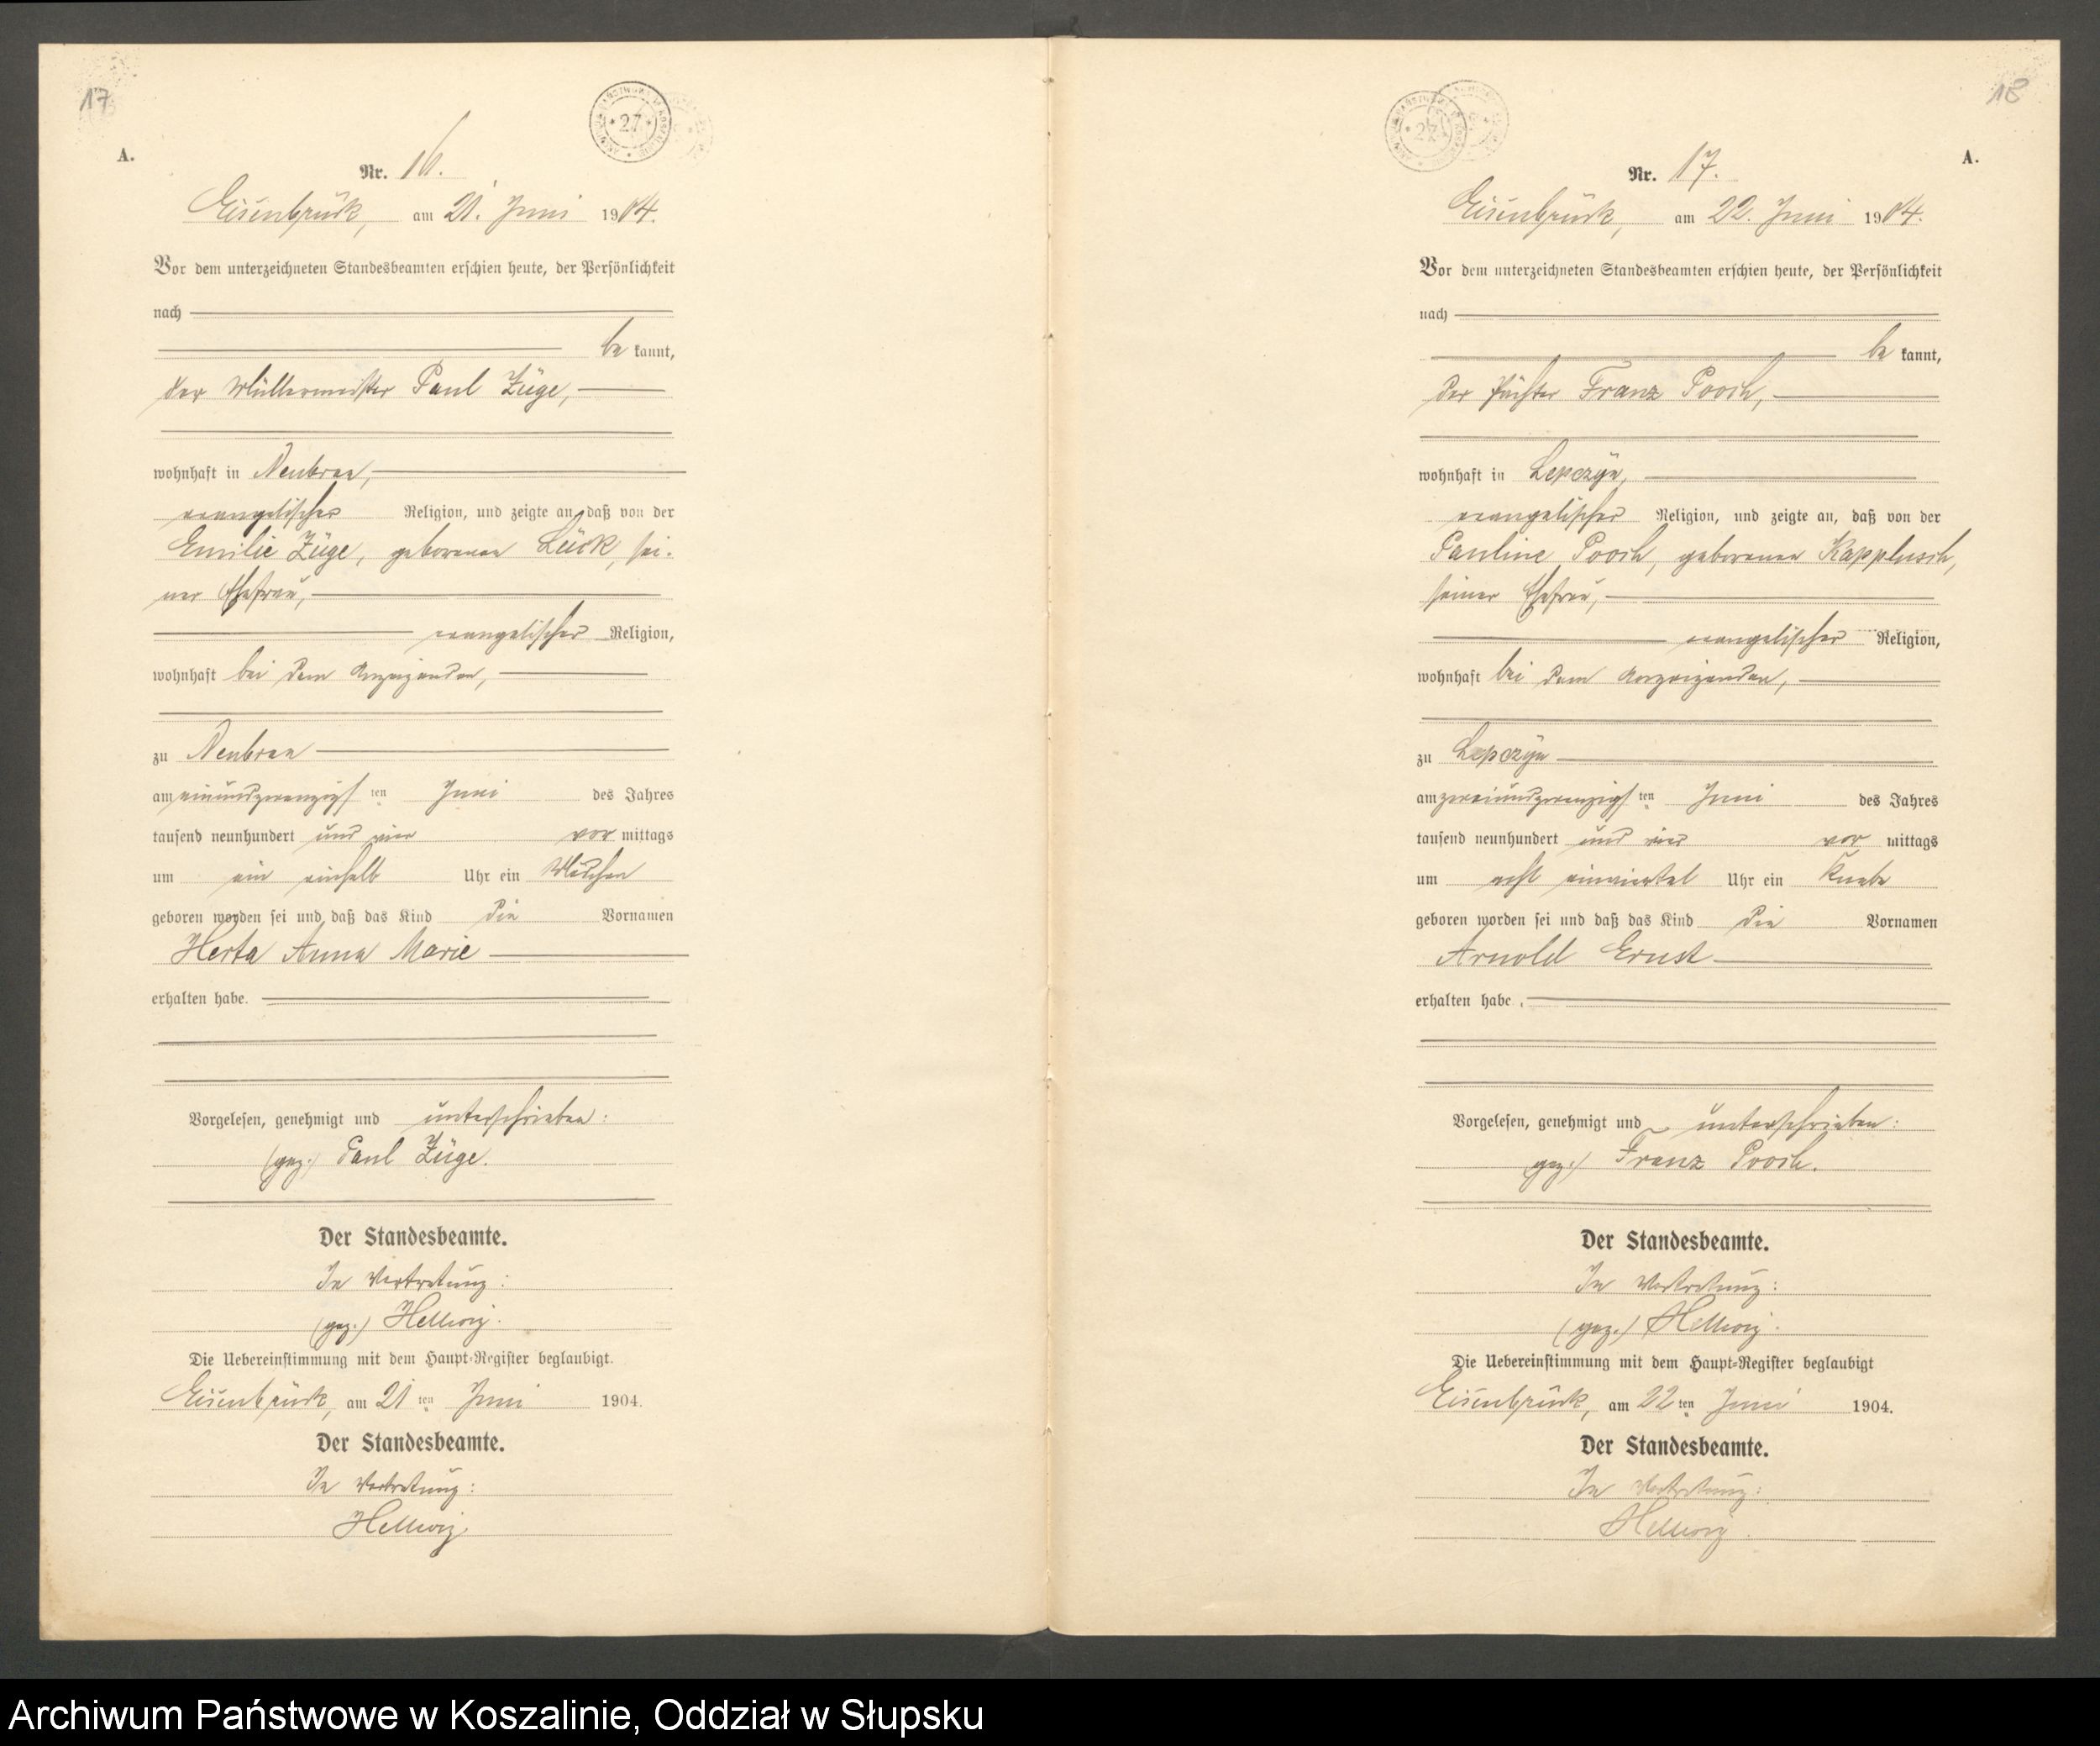 17
A.
Nr. 16.
Eisenbrück, am 21. Juni 1904.
Vor dem unterzeichneten Standesbeamten erschien heute, der Persönlichkeit
nach
be kannt,
der Müllermeister Paul Züge,
wohnhaft in Neubraa,
evangelischer Religion, und zeigte an, daß von der
Emilie Züge, geborenen Lück, sei-
ner Ehefrau,
evangelischer Religion,
wohnhaft bei dem Anzeigenden,
zu Neubraa
am einundzwanzigsten Juni des Jahres
tausend neunhundert und vier vor mittags
um ein einhalb Uhr ein Mädchen
geboren worden sei und daß das Kind die Vornamen
Herta Anna Marie
erhalten habe.
Vorgelesen, genehmigt und unterschrieben:
(gez.) Paul Züge.
Der Standesbeamte.
In Vertretung:
(gez.) Hellwig.
Die Uebereinstimmung mit dem Haupt-Register beglaubigt.
Eisenbrück, am 21 ten Juni 1904.
Der Standesbeamte.
In Vertretung:
Hellwig
18
A.
Nr. 17.
Eisenbrück, am 22. Juni 1904.
Vor dem unterzeichneten Standesbeamten erschien heute, der Persönlichkeit
nach
be kannt,
der Pächter Franz Pooch,
wohnhaft in Lepczyn,
evangelischer Religion, und zeigte an, daß von der
Pauline Pooch, geborenen Kapplusch,
seiner Ehefrau,
evangelischer Religion,
wohnhaft bei dem Anzeigenden,
zu Lepczyn
am zweiundzwanzigsten Juni des Jahres
tausend neunhundert und vier vor mittags
um acht einviertel Uhr ein Knabe
geboren worden sei und daß das Kind die Vornamen
Arnold Ernst
erhalten habe.
Vorgelesen, genehmigt und unterschrieben:
gez.) Franz Pooch.
Der Standesbeamte.
In Vertretung:
(gez.) Hellwig.
Die Uebereinstimmung mit dem Haupt-Register beglaubigt
Eisenbrück, am 22 ten Juni 1904.
Der Standesbeamte.
In Vertretung:
Hellwig.
Archiwum Państwowe w Koszalinie, Oddział w Słupsku